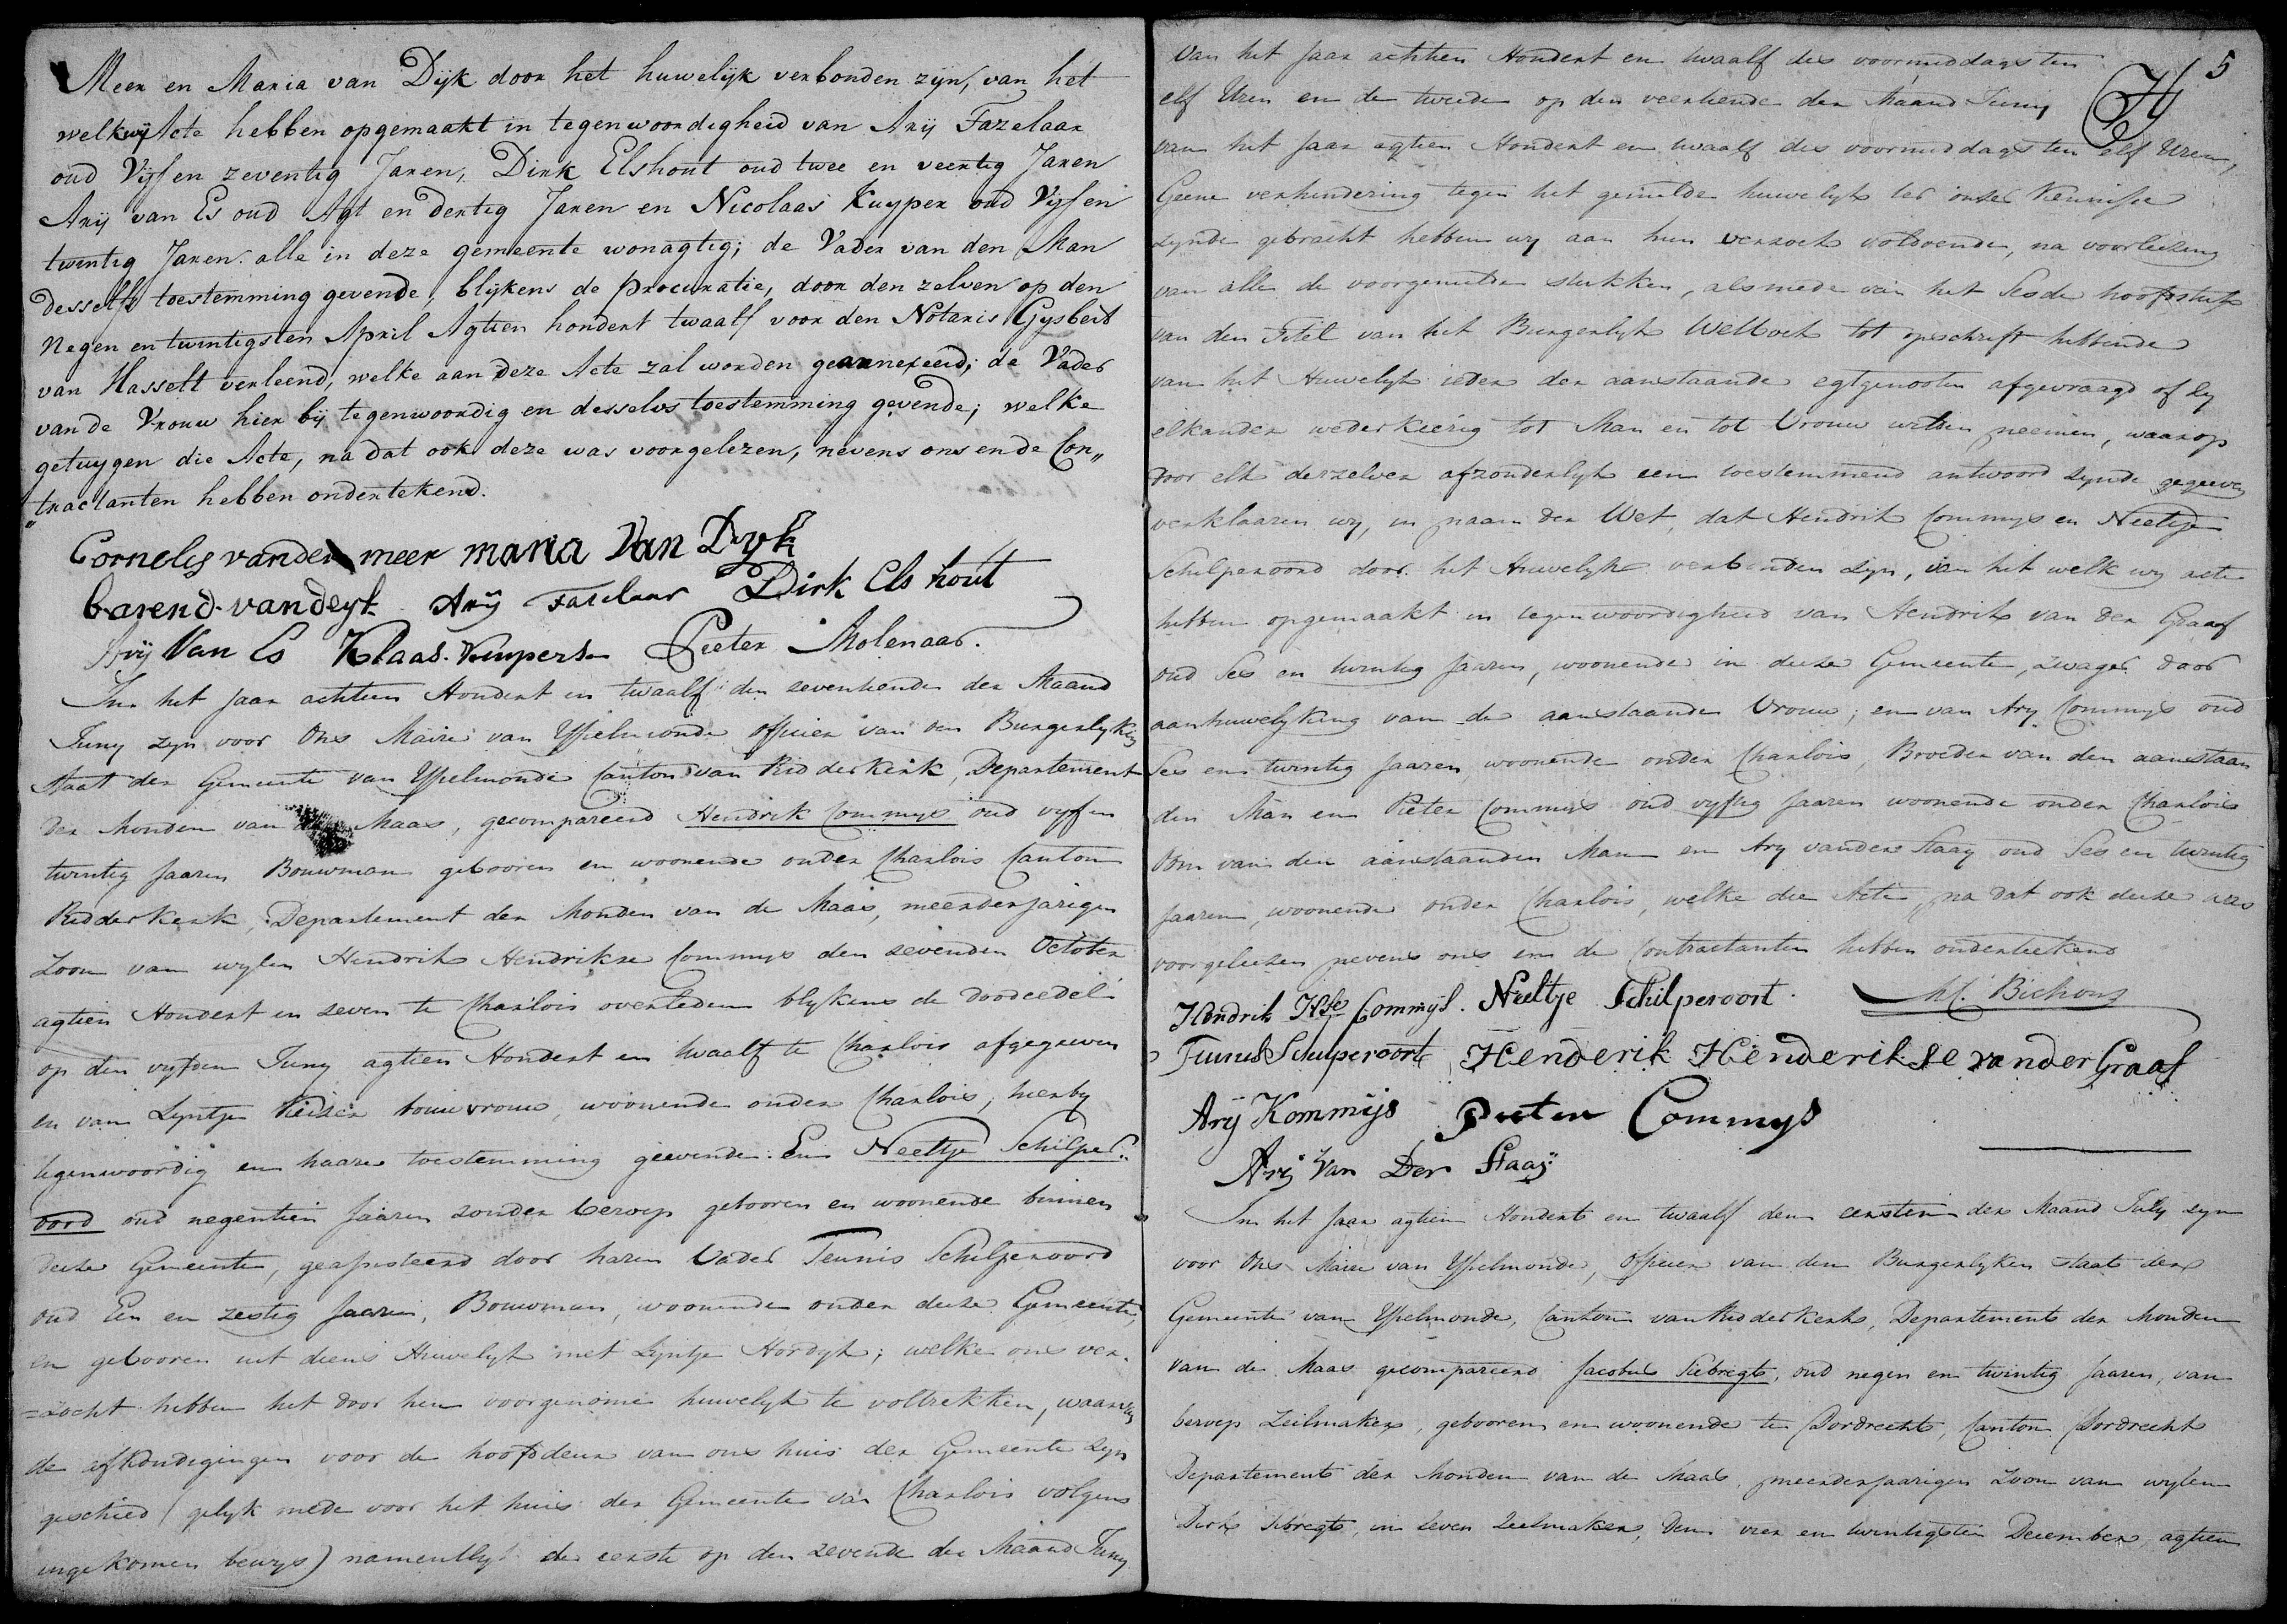 Meer en Maria van Dijk door het huwelijk verbonden zijn, van het
welk wij Acte hebben opgemaakt in tegenwoordigheid van Arij Fazelaar
oud Vijf en zeventig Jaren, Dirk Elshout oud twee en veertig Jaren
Arij van Es oud Agt en dertig Jaren en Nicolaas Kuyper oud Vijf en
twintig Jaren. alle in deze gemeente wonagtig; de Vader van den Man
desselfs toestemming gevende, blijkens de procuratie, door den zelven op den
Negen en twintigsten April Agtien hondert twaalf voor den Notaris Gysbert
van Hasselt verleend, welke aan deze Acte zal worden geannexeerd; de Vader
van de Vrouw hier bij tegenwoordig en desselvs toestemming gevende; welke
getuygen die Acte, na dat ook deze was voorgelezen, nevens ons en de Con„
„tractanten hebben ondertekend.
Cornelis vander meer maria Van Dyk
barend vandeyk Arij Faselaar Dirk Els hout
Arij Van Es Klaas Kuipers Pieter Molenaar.
In het jaar achtien Hondert en twaalf den seventiende der Maand
Juny zyn voor Ons Maire van Ysselmonde officier van den Burgerlyken
Staat der Gemeente van Ysselmonde Canton van Ridderkerk, Departement
der Monden van de Maas, gecompareerd Hendrik Commys oud vyf en
twintig Jaaren Bouwman gebooren en woonende onder Charlois Canton
Ridderkerk, Departement der Monden van de Maas, meerderjarigen
Zoon van wylen Hendrik Hendrikse Commys den sevenden October
agtien Hondert en zeven te Charlois overleden blykens de doodcedel
op den vyfden Juny agtien Hondert en twaalf te Charlois afgegeeven
en van Lyntje Keizer bouwvrouw, woonende onder Charlois, hierby
tegenwoordig en haare toestemming geevende. En Neeltje Schilper„
oord oud negentien Jaaren zonder beroep gebooren en woonende binnen
deeze Gemeente, geassisteerd door haren Vader Teunis Schilperoord
oud Een en zestig Jaaren, Bouwman, woonende onder deeze Gemeente,
en gebooren uit diens Huwelyk met Lyntje Hordyk; welke ons ver„
=zocht hebben het door hen voorgenome huwelyk te voltrekken, waarvan
de afkondigingen voor de hoofddeur van ons huis der Gemeente zyn
geschied (gelyk mede voor het huis der Gemeente van Charlois volgens
ingekomen bewys) namentlyk de eerste op den zevende der Maand Juny
5
van het Jaar achtien Hondert en twaalf des voormiddags ten
elf Uren en de tweede op den veertiende der Maand Juny
van het Jaar agtien Hondert en twaalf des voormiddags ten elf Uren,
Geene verhindering tegen het gemelde huwelyk ter onser Kennisse
zynde gebracht hebben wy aan hun verzoek voldoende, na voorleezing
van alle de voorgemelde stukken, alsmede van het Sesde hoofdstuk
van den Titel van het Burgerlyk Wetboek tot opschrift hebbende
van het Huwelyk ieder der aanstaande egtgenooten afgevraagd of zy
elkander wederkeerig tot Man en tot Vrouw willen neemen, waarop
door elk derzelver afzonderlyk een toestemmend antwoord zynde gegeeven
verklaaren wy, in naam der Wet, dat Hendrik Commys en Neeltje
Schilperoord door het Huwelyk verbonden zyn, van het welk wy acte
hebben opgemaakt in tegenwoordigheid van Hendrik van der Graaf
oud Ses en twintig Jaaren, woonende in deeze Gemeente, zwager door
aanhuwelyking van de aanstaande Vrouw; en van Ary Commys oud
Ses en twintig Jaaren woonende onder Charlois, Broeder van den aanstaan
den Man en Pieter Commys oud vyftig Jaaren woonende onder Charlois
Oom van den aanstaanden Man en Ary vander Staay oud Ses en twintig
Jaaren, woonende onder Charlois, welke die Acte, na dat ook deeze was
voorgeleezen nevens ons en de Contractanten hebben onderteekend
Hendrik Hse Commijs. Neeltje Schilperoort. M. Bichons
Teunis Schilperoort Henderik Henderikse vander Graaf
Arij Kommijs Pieter Commys
Arij Van Der Staaij
In het Jaar agtien Hondert en twaalf den eersten der Maand July zyn
voor Ons Maire van Ysselmonde, Officier van den Burgerlyken staat der
Gemeente van Ysselmonde, Canton van Ridderkerk, Departement der Monden
van de Maas gecompareerd Jacobus Siebregts, oud negen en twintig Jaaren, van
beroep Zeilmaker, gebooren en woonende te Dordrecht, Canton Dordrecht
Departement der Monden van de Maas, meerderjaarigen Zoon van wylen
Dirk Sibregts, in leven Zeilmaker, den vier en twintigsten December agtien